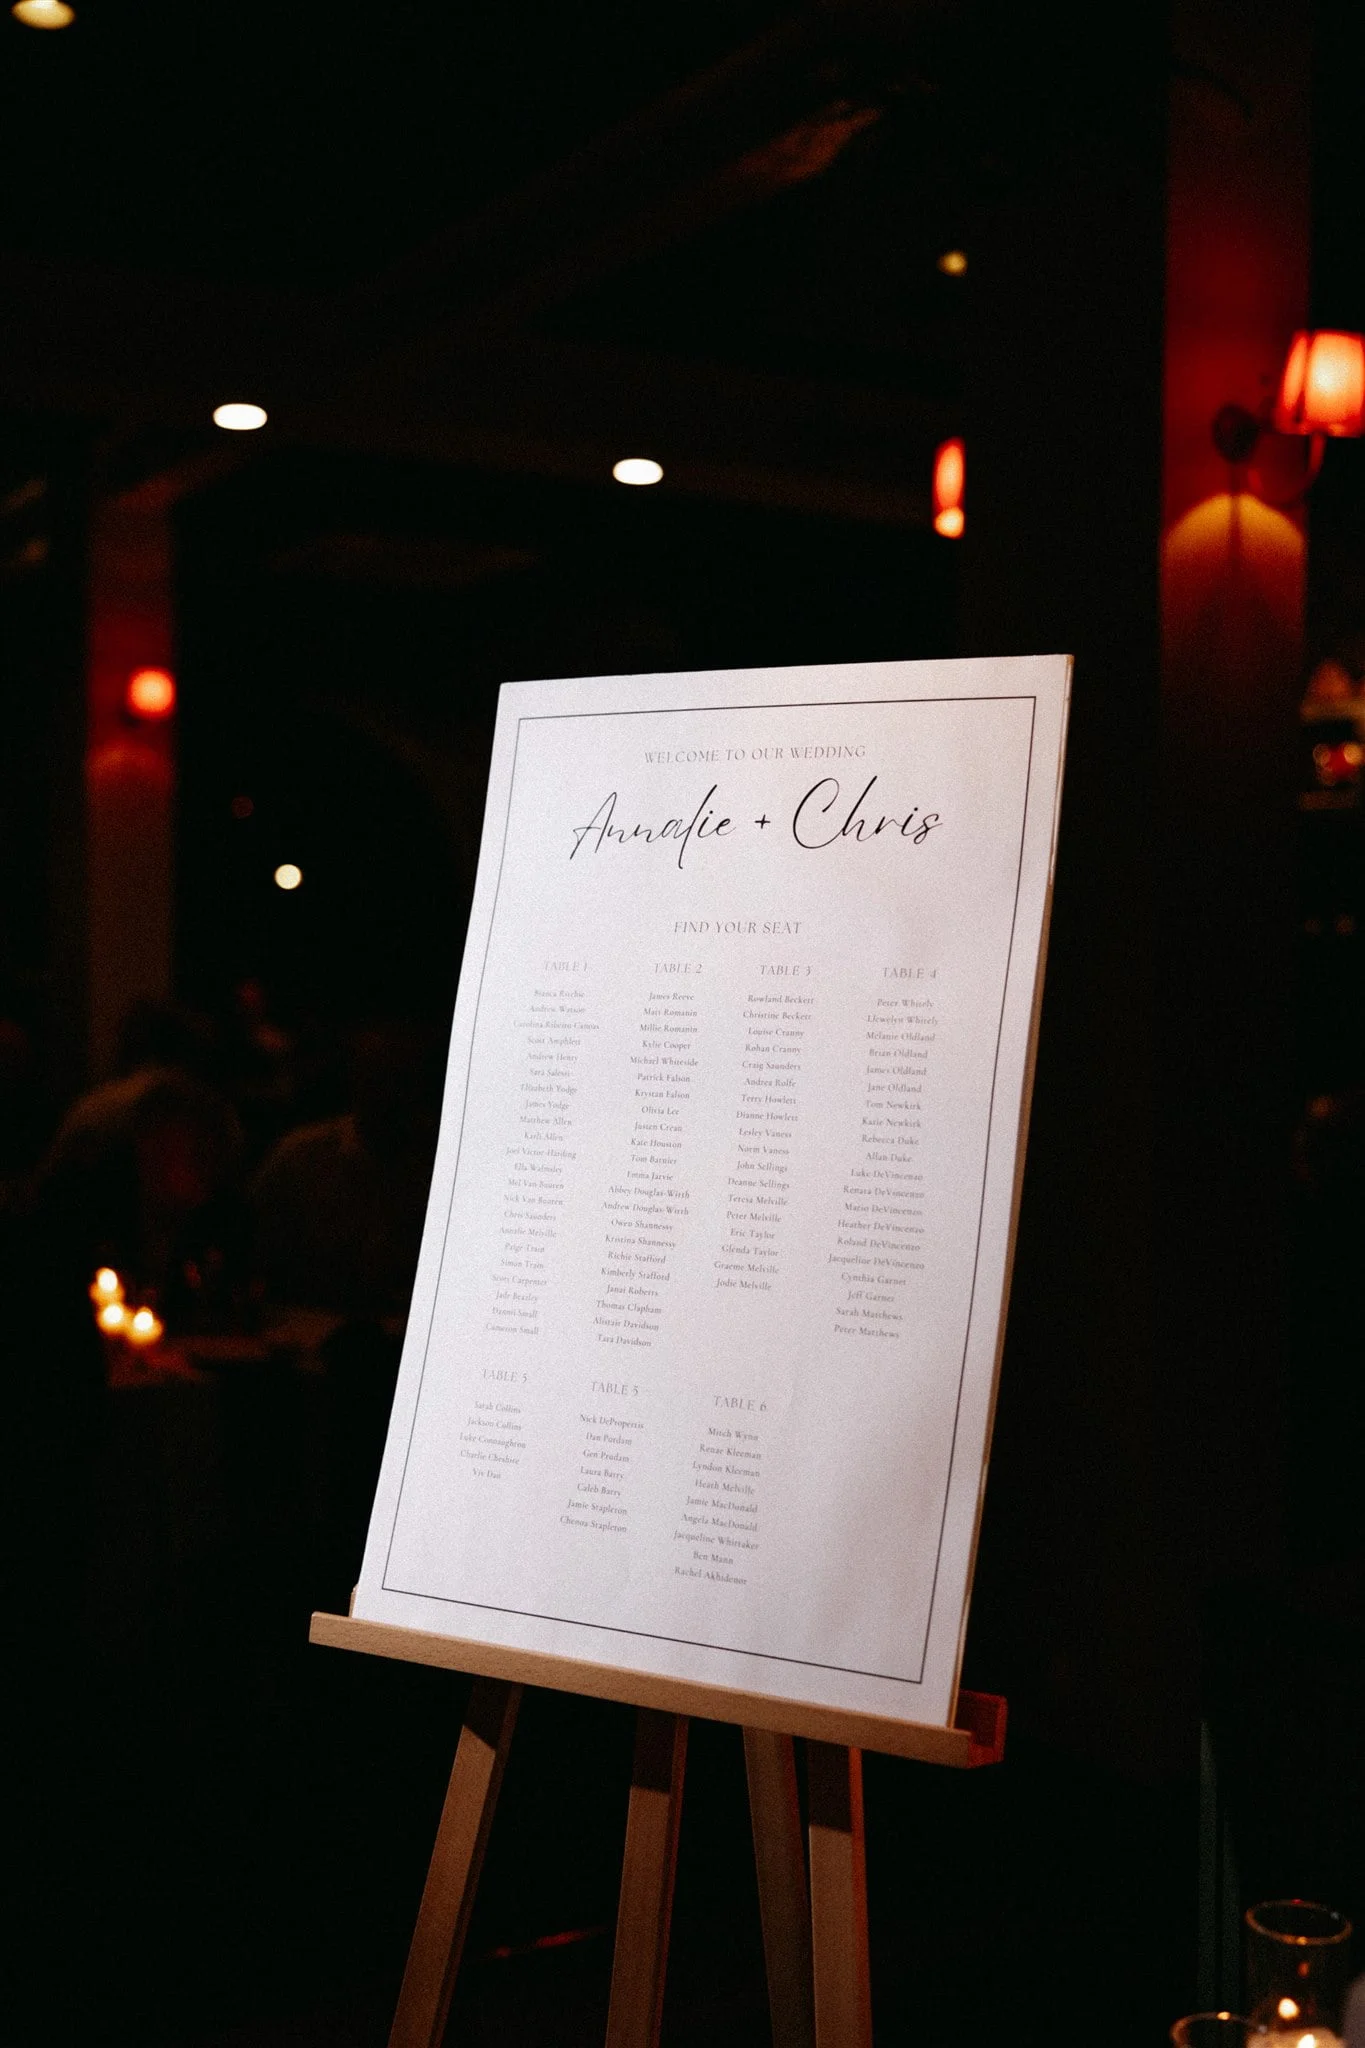 WELCOME TO OUR WEDDING
Annalie + Chris
FIND YOUR SEAT
TABLE 1
Bianca Ritchie
Andrew Watson
Carolina Ribeiro Canoas
Scott Amphlett
Andrew Henry
Sara Salessi
Elizabeth Yodge
James Yodge
Matthew Allen
Karli Allen
Joel Victor-Harding
Ella Walmsley
Mel Van Buuren
Nick Van Buuren
Chris Saunders
Annalie Melville
Paige Train
Simon Train
Scott Carpenter
Jade Beazley
Danni Small
Cameron Small
TABLE 2
James Reeve
Matt Romanin
Millie Romanin
Kylie Cooper
Michael Whiteside
Patrick Falson
Krystan Falson
Olivia Lee
Justen Crean
Kate Houston
Tom Barnier
Emma Jarvie
Abbey Douglas-Wirth
Andrew Douglas-Wirth
Owen Shannessy
Kristina Shannessy
Richie Stafford
Kimberly Stafford
Janai Roberts
Thomas Clapham
Alistair Davidson
Tara Davidson
TABLE 3
Rowland Beckett
Christine Beckett
Louise Cranny
Rohan Cranny
Craig Saunders
Andrea Rolfe
Terry Howlett
Dianne Howlett
Lesley Vaness
Norm Vaness
John Sellings
Deanne Sellings
Teresa Melville
Peter Melville
Eric Taylor
Glenda Taylor
Graeme Melville
Jodie Melville
TABLE 4
Peter Whitely
Llewelyn Whitely
Melanie Oldland
Brian Oldland
James Oldland
Jane Oldland
Tom Newkirk
Kazie Newkirk
Rebecca Duke
Allan Duke
Luke DeVincenzo
Renata DeVincenzo
Mario DeVincenzo
Heather DeVincenzo
Roland DeVincenzo
Jacqueline DeVincenzo
Cynthia Garnet
Jeff Garnet
Sarah Matthews
Peter Matthews
TABLE 5
Sarah Collins
Jackson Collins
Luke Connaughton
Charlie Cheshire
Viv Dao
TABLE 5
Nick DePropertis
Dan Purdam
Gen Prudam
Laura Barry
Caleb Barry
Jamie Stapleton
Chenoa Stapleton
TABLE 6
Mitch Wynn
Renae Kleeman
Lyndon Kleeman
Heath Melville
Jamie MacDonald
Angela MacDonald
Jacqueline Whittaker
Ben Mann
Rachel Akhidenor